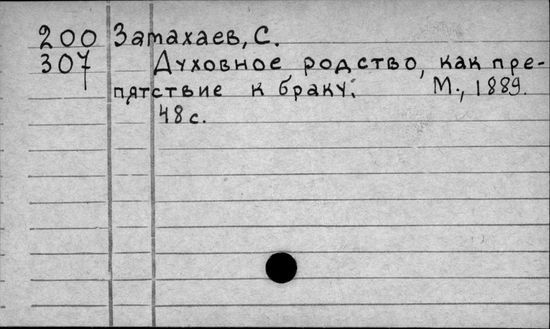 200 Затахаев, С.
307 Духовное родство, как пре-
пятствие к браку. М., 1889.
48 с.